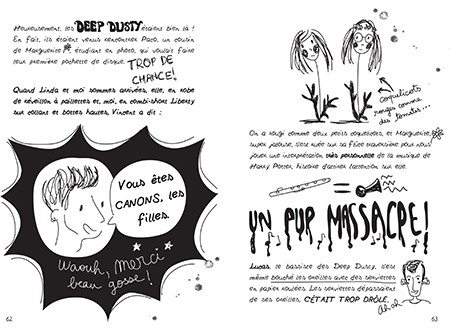 Heureusement, les DEEP DUSTY étaient bien là !
En fait, ils étaient venus rencontrer Paco, un cousin
de Marguerite, étudiant en photo, qui voulait faire
leur première pochette de disque. TROP DE
CHANCE!
Quand Linda et moi sommes arrivées, elle, en robe
de réveillon à paillettes et, moi, en combi-short Liberty
sur collant et bottes hautes, Vincent a dit :
Vous êtes
CANONS, les
filles.
Waouh, merci
beau gosse !
62
coquelicots
rouges comme
des tomates...
On a rougi comme deux petits coquelicots, et Marguerite,
super jalouse, s'est ruée sur sa flûte traversière pour nous
jouer une interprétation très personnelle de la musique de
Harry Potter, histoire d'attirer l'attention sur elle.
=
UN PUR MASSACRE!
Lucas, le bassiste des Deep Dusty, s'est
même bouché les oreilles avec des serviettes
en papier roulées. Les serviettes dépassaient
de ses oreilles, C'ÉTAIT TROP DRÔLE.
Ah ah
63